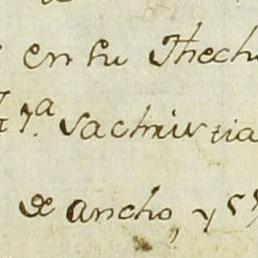 en su Thech
7.ª Sachris tia
de ancho, y